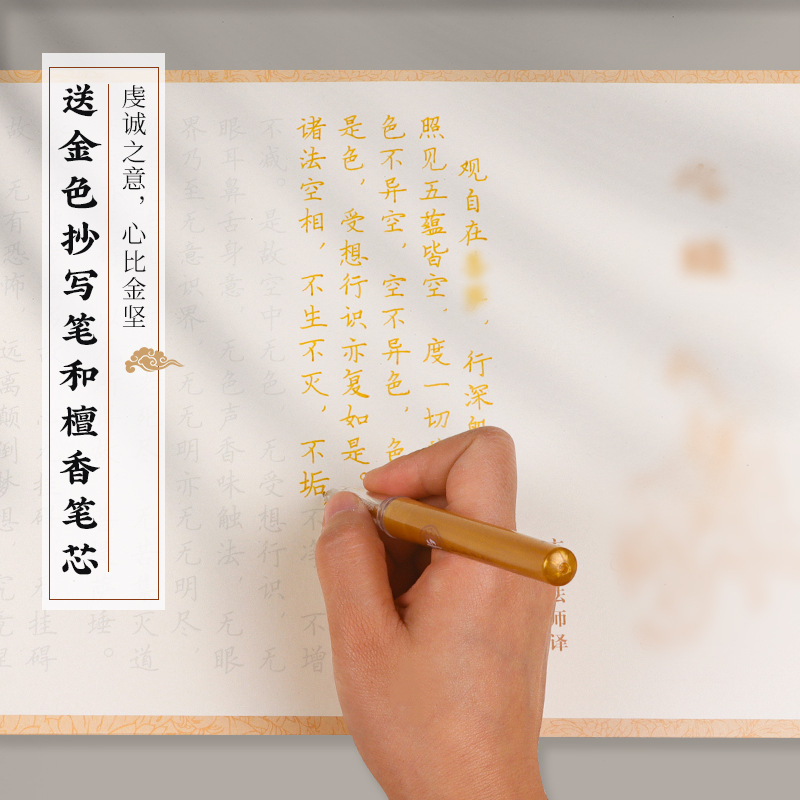 虔诚之意，心比金坚
送金色抄写笔和檀香笔芯
法师译
观自在，行深
照见五蕴皆空，度一切
色不异空，空不异色，色
是色，受想行识亦复如是。
诸法空相，不生不灭，不垢不净 不增
不减。是故空中无色，无受想行识，无
眼耳鼻舌身意，无色声香味触法，无眼
界乃至无意识界，无无明亦无无明尽，
灭道
埵。
挂碍
故 无有恐怖，远离颠倒梦想，究竟涅